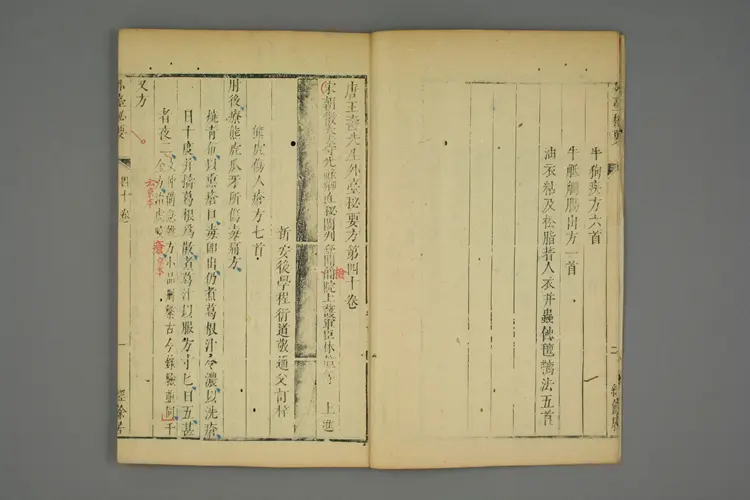 牛狗疾方六首
牛觝觸腸出方一首
油衣粘及松脂著人衣并蟲蛀氊䙝法五首
唐王燾先生外臺秘要方第四十卷
宋朝散大夫守光祿卿直秘閣判登聞檢院上護軍臣林億等 上進
新安後學程衍道敬通父訂梓
熊虎傷人瘡方七首
肘後療熊虎爪牙所傷毒痛方
燒青布以熏瘡口毒即出仍煮葛根汁令濃以洗瘡
日十度并搗葛根為散煮葛汁以服方寸匕日五甚
者夜二
又方
外臺秘要
四十卷
一
經餘居